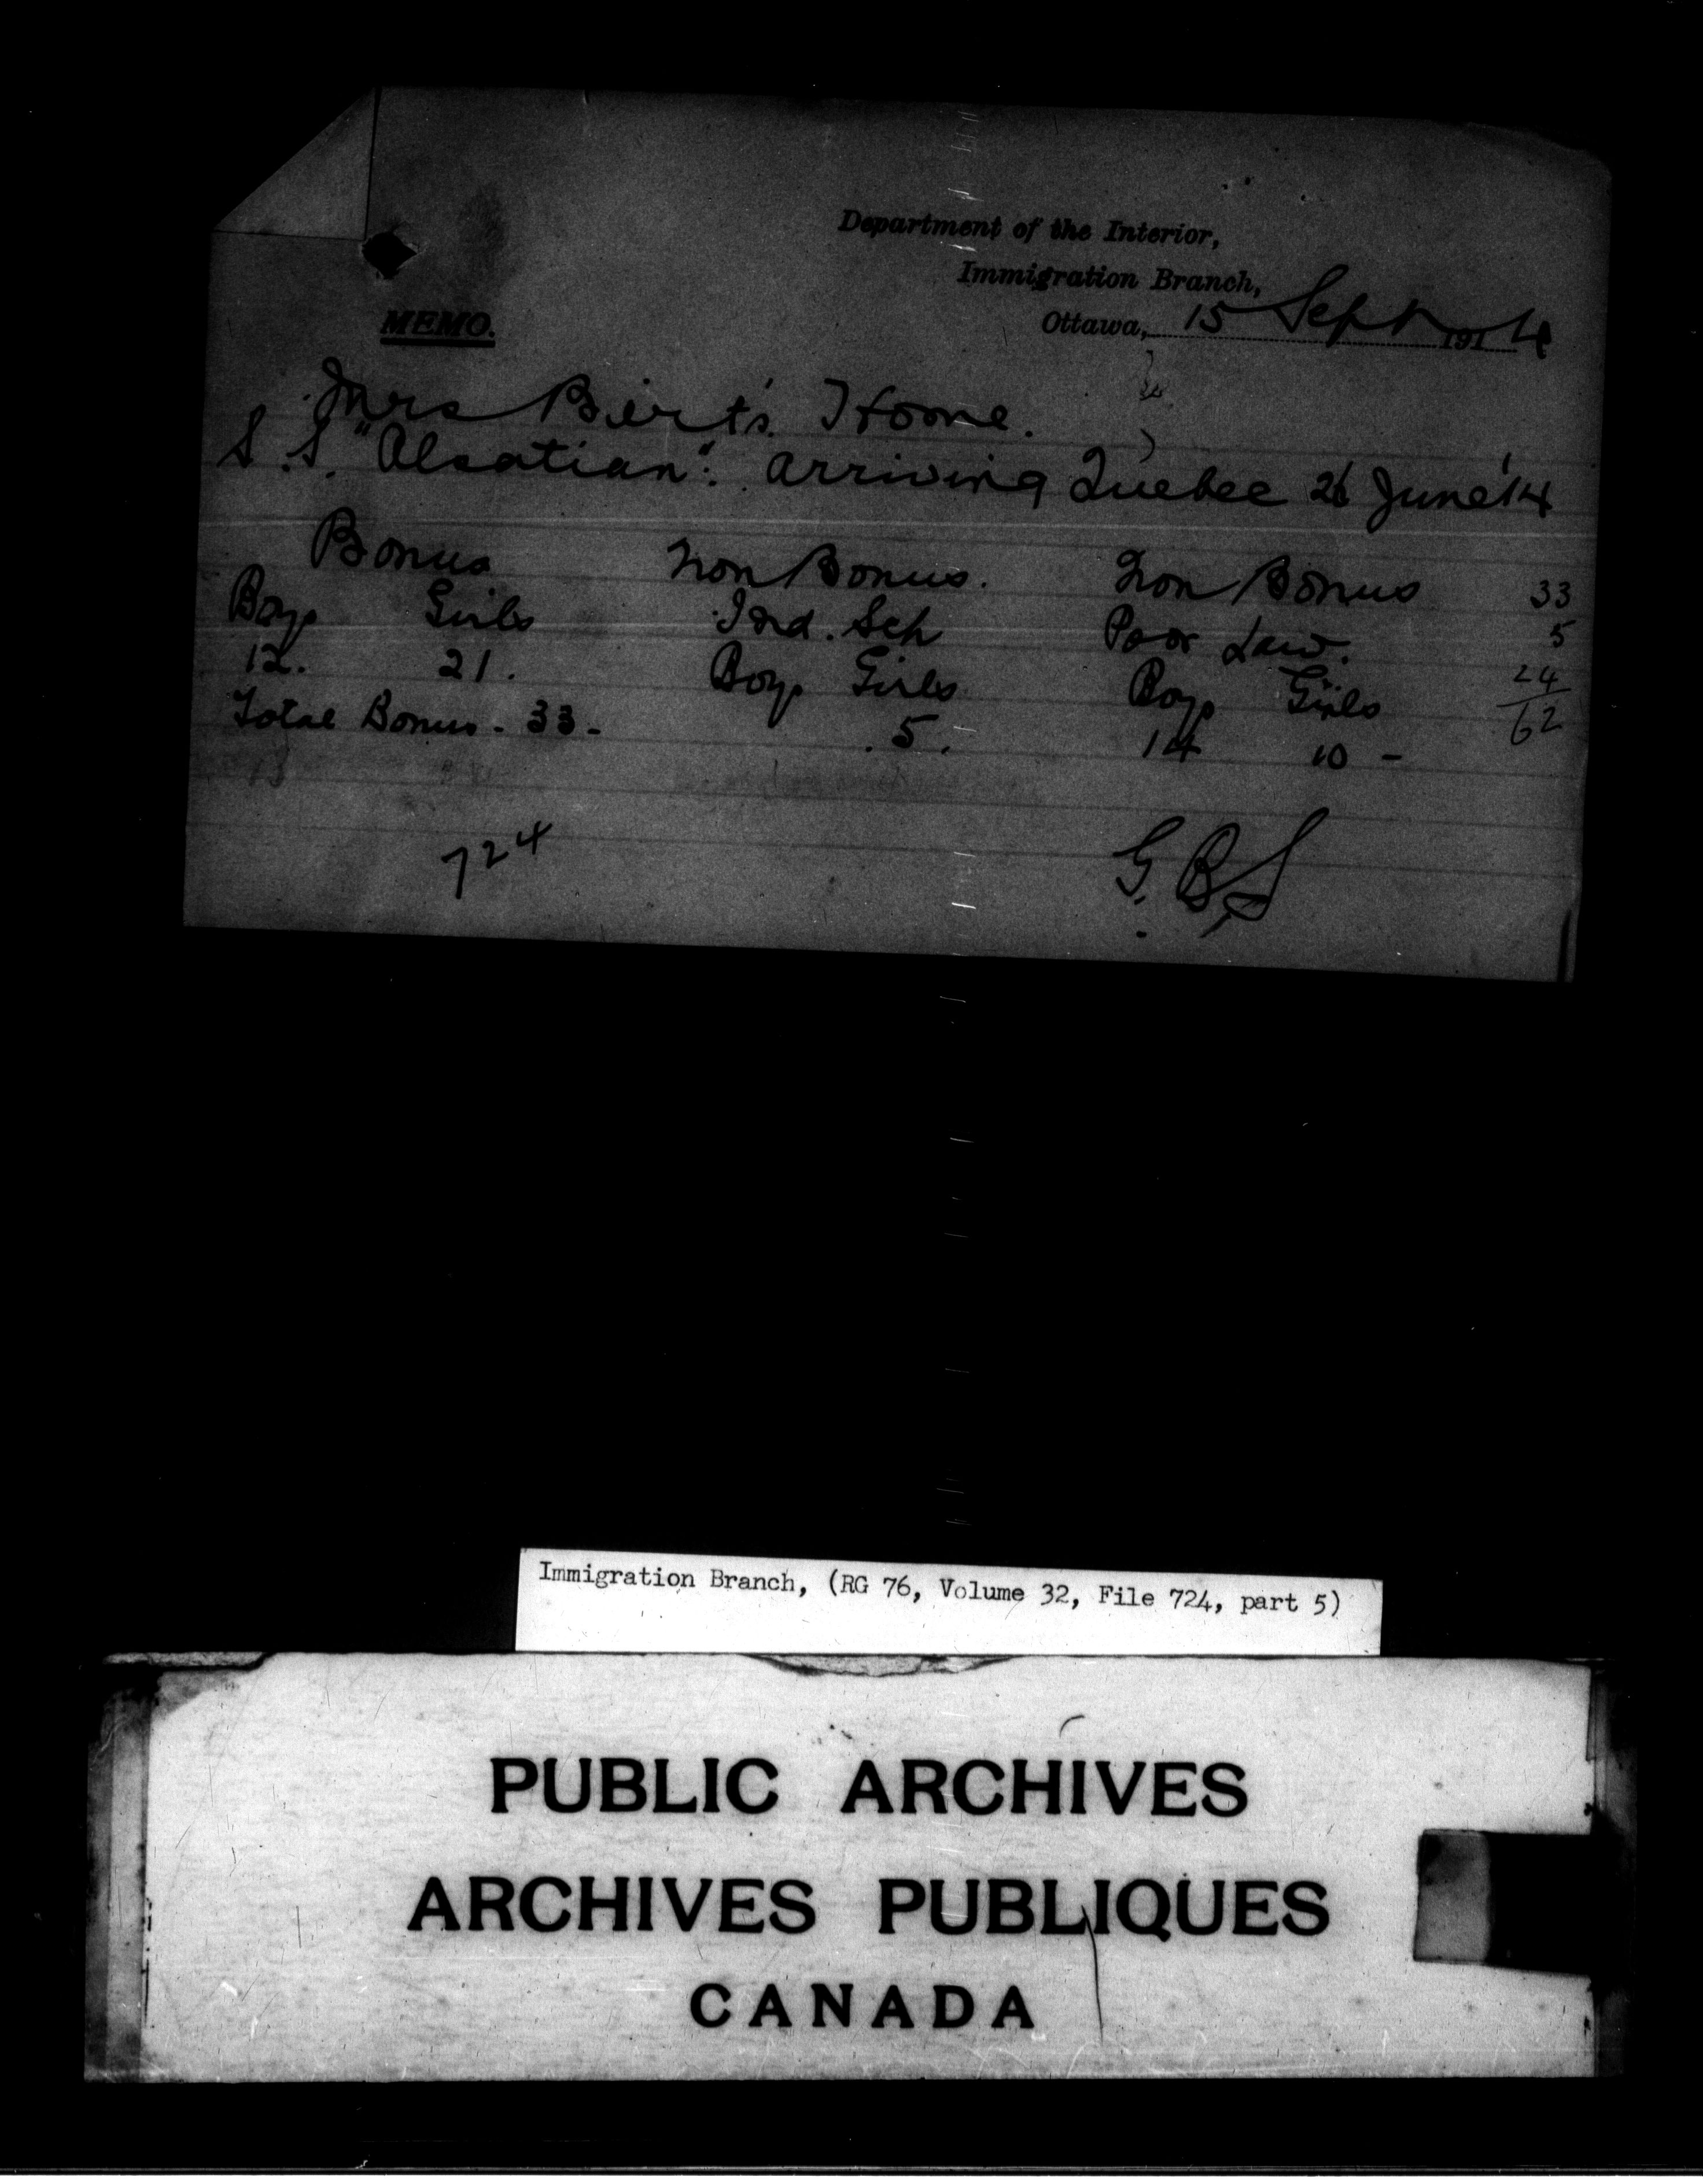 Department of the Interior,
Immigration Branch,
Ottawa, 15 Sept 1914
MEMO.
Mrs Birt's Home.
S.S. "Alsatian". arriving Quebec June '14
Bonus Non Bonus. Non Bonus 33
Boys Girls Ind. Sch Poor Law. 5
12. 21. Boys Girls Boys Girls 24
Total Bonus - 33 - 5. 14 10 - 62
724 G.B.S
Immigration Branch, (RG 76, Volume 32, File 724, part 5)
PUBLIC ARCHIVES
ARCHIVES PUBLIQUES
CANADA